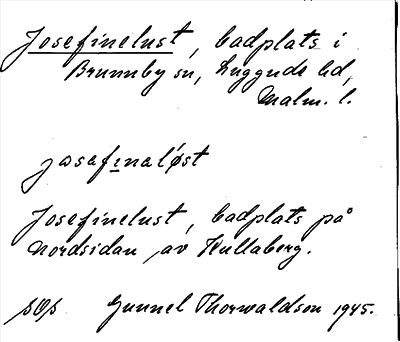 Josefinelust, badplats i
Brunnby sn, Luggude hd,
Malm. l.
jɷsefinaløst
Josefinelust, badplats på
nordsidan av Kullaberg.
Gunnel Thorwaldson 1945.